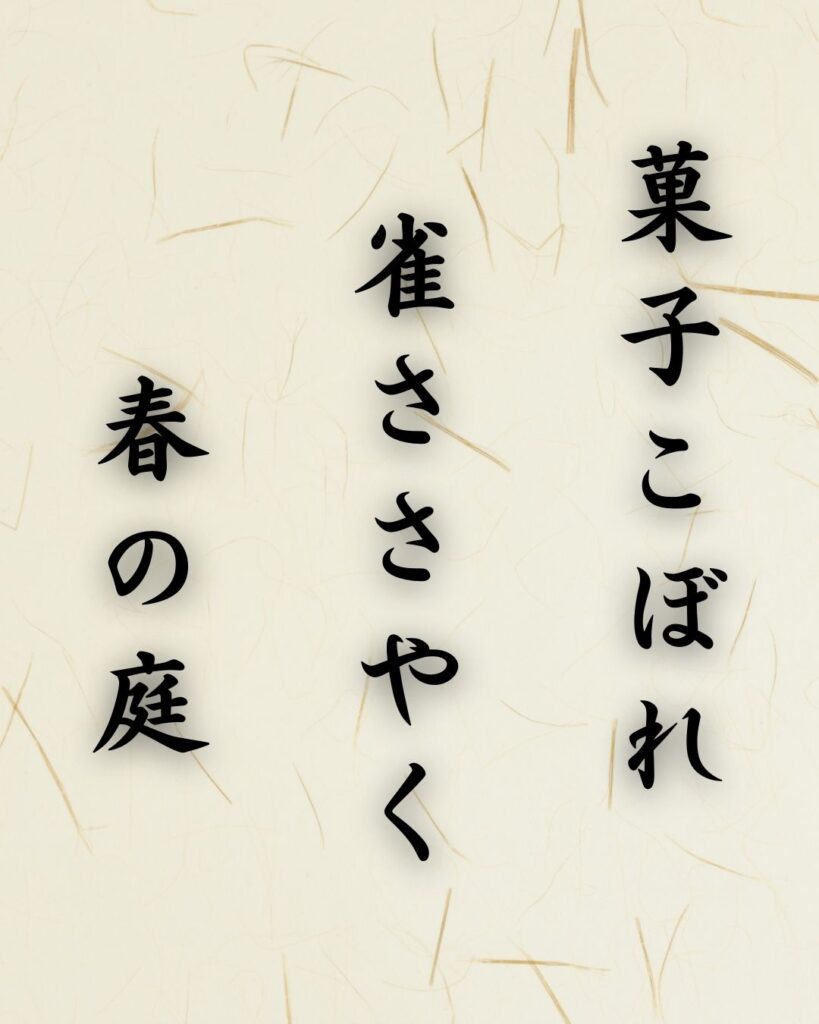 菓子こぼれ
雀ささやく
春の庭